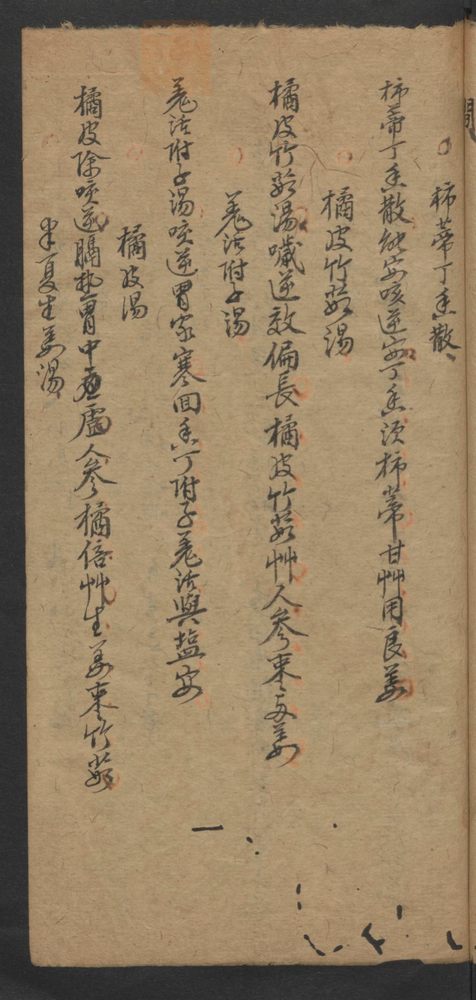 柿蒂丁香散
柿蒂丁香散能安咳逆安丁香須柿蒂甘艸用良姜
橘皮竹茹湯
橘皮竹茹湯噦逆效偏長橘皮竹茹艸人參棗与姜
羌活附子湯
羌活附子湯咳逆胃家寒回香丁附子羌活與塩安
橘皮湯
橘皮除咳逆膈熱胃中虛人參橘倍艸生姜棗竹茹
半夏生姜湯